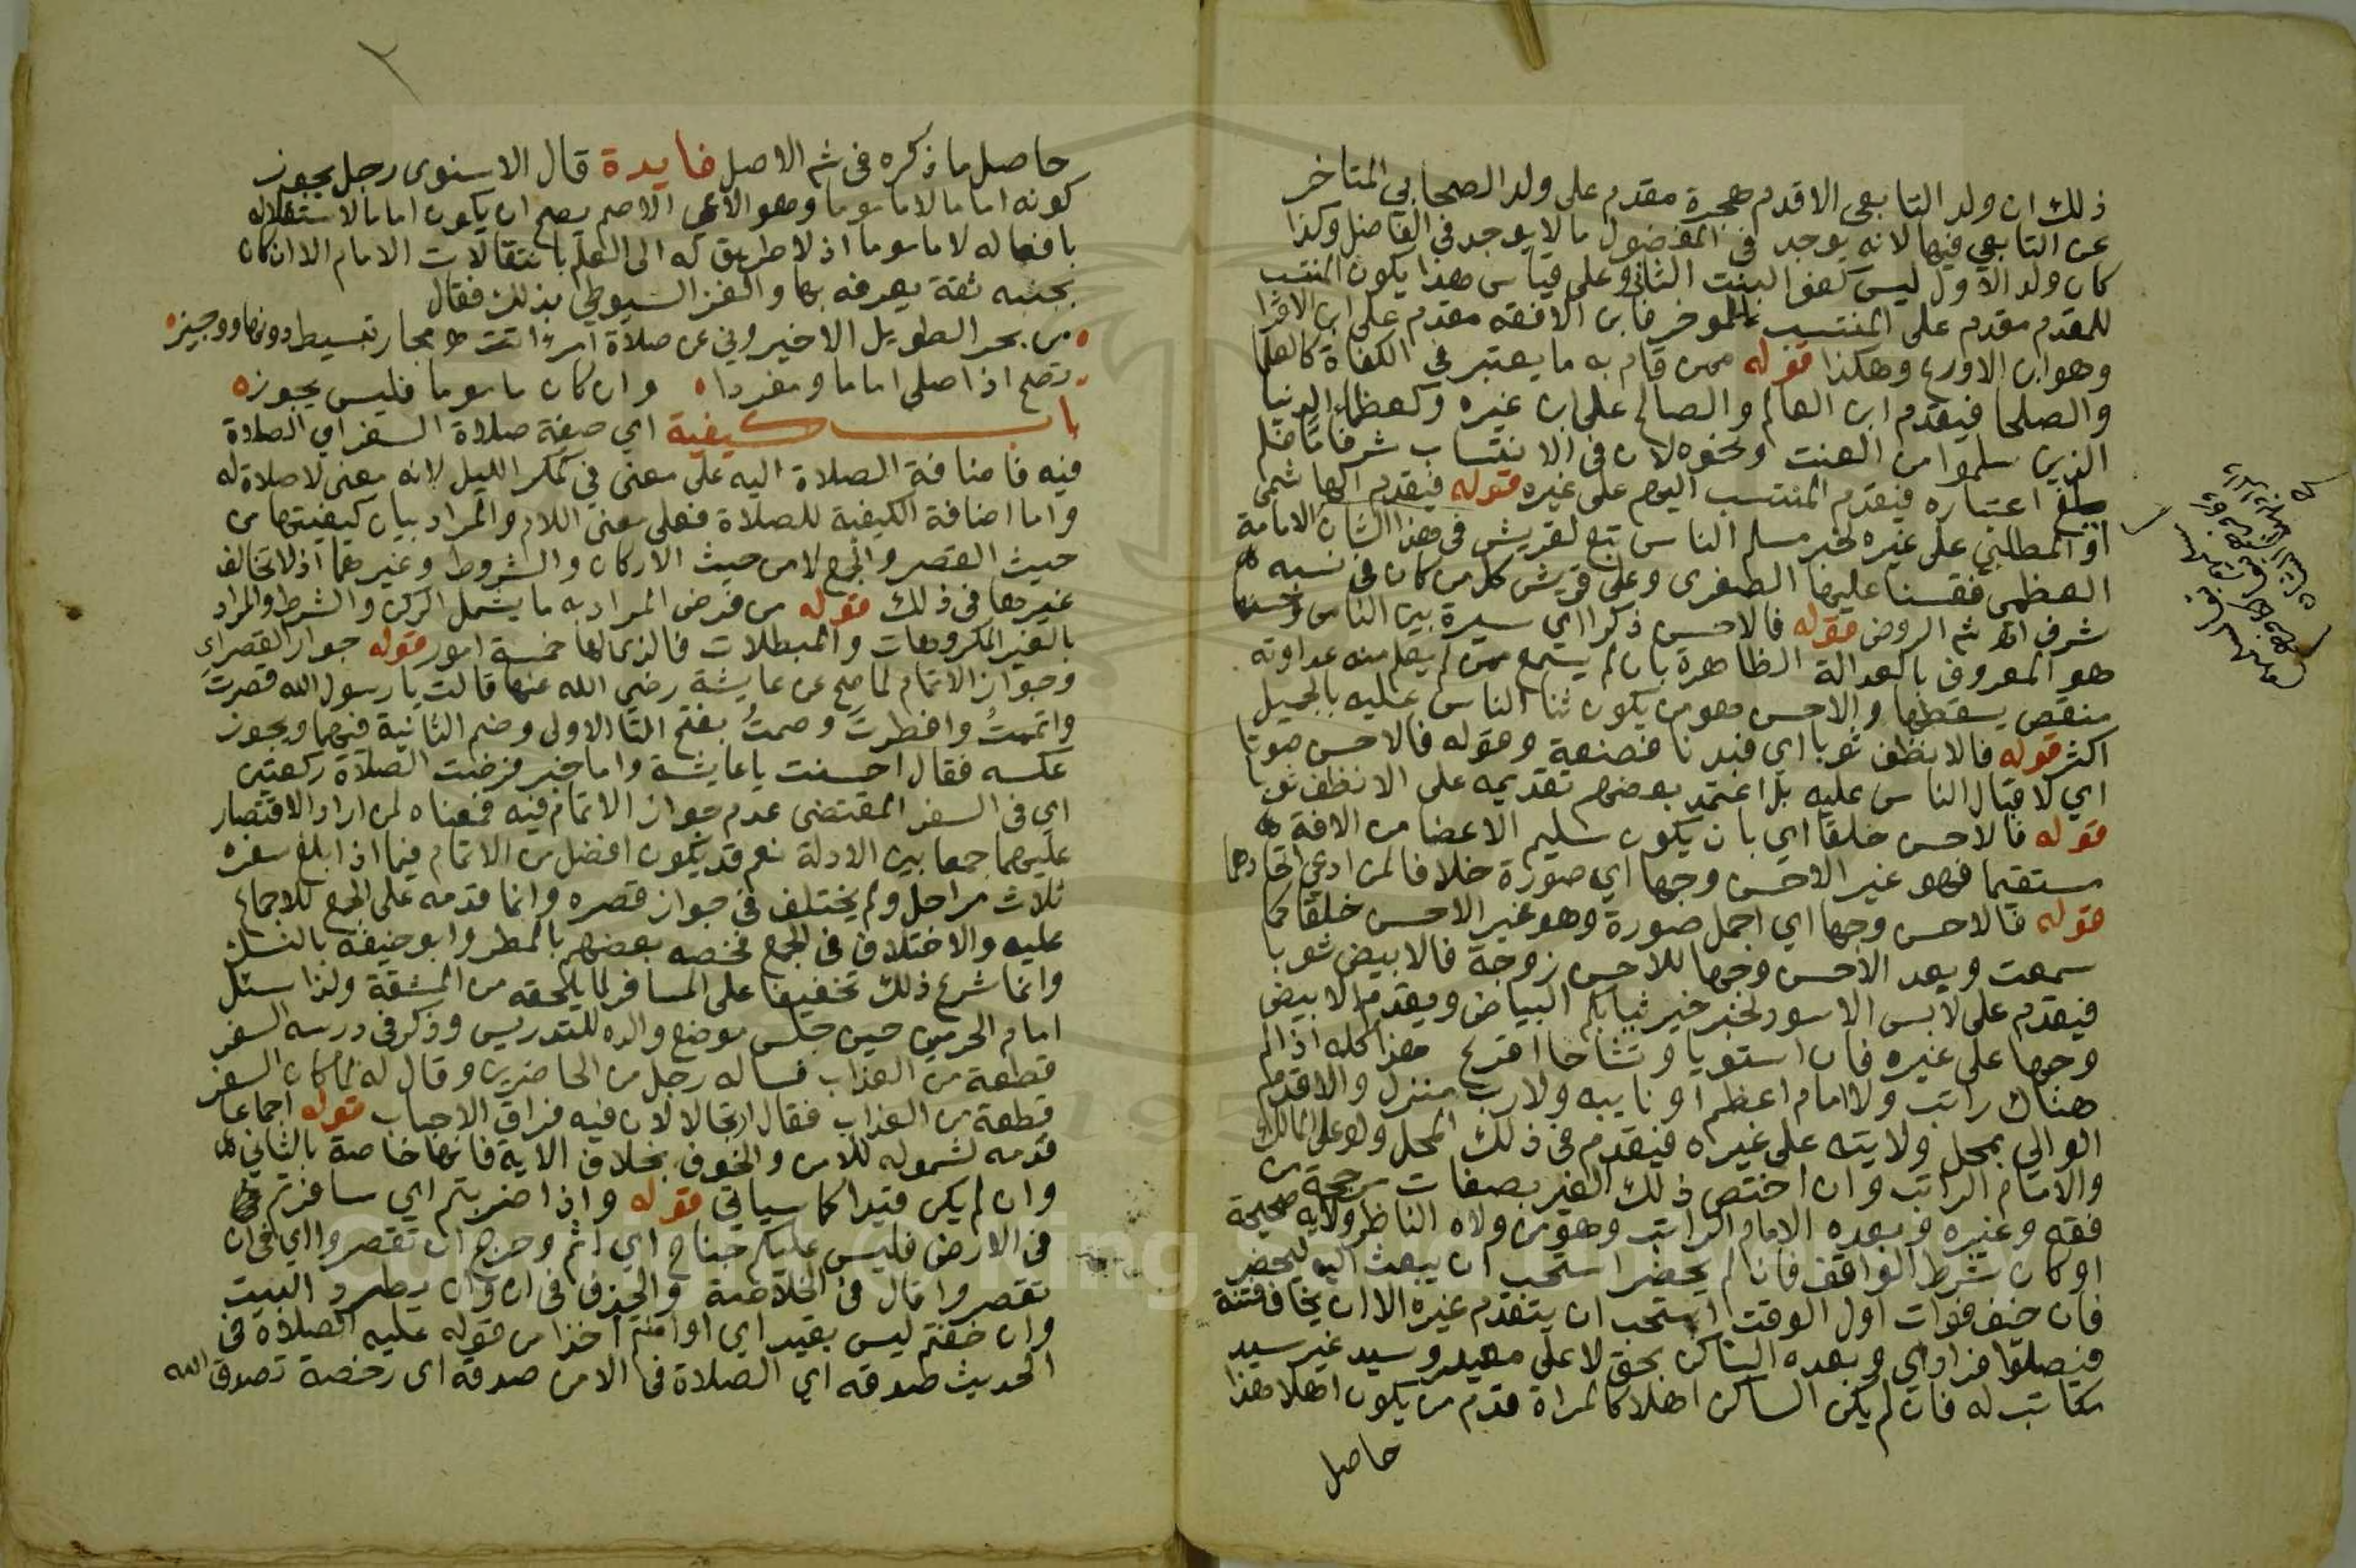 ذلك ان ولد التابعى الاقدم هجرة مقدم على ولد الصحابي المتاخر
عن التابعي فيها لانه يوجد فى المفضول مالا يوجد في الفاضل وكذا
كان ولد الاول ليس كفو البنت الثانى وعلى قياس هذا يكون المنتسب
للمقدم مقدم على المنتسب للموخر فابن الافقه مقدم على ابن الاقرا
وهو ابن الاورع وهكذا قوله ممن قام به ما يعتبر في الكفاة كالعلما
والصلحا فيقدم ابن العالم والصالح على ابن غيره وكعظماء الدنيا
الذين سلموا من العنت ونحوه لان فى الانتساب شرفا فلم
يلغ اعتباره فيقدم المنتسب اليهم على غيره قوله فيقدم الهاشمى
او المطلبي على غيره لخبر مسلم الناس تبع لقريش فى هذا الشان الامامة
العظمى فقسنا عليها الصغرى وعلى قريش كل من كان فى نسبه
شرف اه شم الروض قوله فالاحسن ذكرا اي سيرة بين الناس
هو المعروف بالعدالة الظاهرة بان لم يسمع ممن لم يعلم منه عداوته
منقص يسقطها والاحسن هو من يكون ثنا الناس عليه بالجميل
اكثر قوله فالانظف ثوبا اي فبدنا فصنعة وقوله فالاحسن صوتا
اي لاقبال الناس عليه بل اعتمد بعضهم تقديمه على الانظف ثوبا
قوله فالاحسن خلقا اي بان يكون سليم الاعضا من الافة
مستقيما فهو غير الاحسن وجها اي صورة خلافا لمن ادعى اتحادهما
قوله فالاحسن وجها اي اجمل صورة وهو غير الاحسن خلقا كما
سمعت وبعد الاحسن وجها للاحسن زوجة فالابيض ثوبا
فيقدم على لابس الاسود لخبر خير ثيابكم البياض ويقدم الابيض
وجها على غيره فان استويا وتشاحا اقرع هذا كله اذا لم
هناك راتب ولا امام اعظم او نايبه ولا رب منزل والاقدم
الوالي بمحل ولايته على غيره فيقدم فى ذلك المحل ولو على المالك
والامام الراتب وان اختص ذلك الغير بصفات مرجحة من
فقه وغيره وبعده الامام الراتب وهو من ولاه الناظر ولاية صحيحة
او كان بشرط الواقف فان لم يحضر استحب ان يبعث اليه ليحضر
فان خيف فوات اول الوقت استحب ان يتقدم غيره الا ان يخاف فتنة
فيصلوا فرادى وبعده الساكن بحق لا على معير وسيد غير سيد
مكاتب له فان لم يكن الساكن اهلا كالمراة قدم من يكون اهلا هذا
حاصل
حاصل ما ذكره فى شم الاصل فايدة قال الاسنوى رجل يجوز
كونه اماما لا ماموما وهو الاعمى الاصم يصح ان يكون اماما لاستقلاله
بافعاله لا ماموما اذ لا طريق له الى العلم بانتقالات الامام الا ان كان
بجنبه ثقة يعرفه بها والغز السيوطي بذلك فقال
من بحر الطويل الاخيروني عن صلاة امرئ اتت بسيط دونها ووجيزه
تصح اذا صلى اماما ومفردا وان كان ماموما فليس يجوزه
باب كيفية اي صيفة صلاة السفر اي الصلاة
فيه فاضافة الصلاة اليه على معنى في كمكر الليل لانه معنى لا صلاة له
واما اضافة الكيفية للصلاة فعلى معنى اللام والمراد بيان كيفيتها من
حيث القصر والجمع لا من حيث الاركان والشروط وغيرهما اذ لا تخالف
غيرها فى ذلك قوله من فرض المراد به ما يشمل الركن والشرط والمراد
بالغير المكروهات والمبطلات فالزمالها خمسة امور قوله جواز القصر اي
وجواز الاتمام لما صح عن عايشة رضي الله عنها قالت يا رسول الله قصرتَ
واتممتُ وافطرتَ وصمتُ بفتح التا الاولى وضم الثانية فيهما ويجوز
عكسه فقال احسنت يا عايشة واما خبر فرضت الصلاة ركعتين
اي فى السفر المقتضى عدم جواز الاتمام فيه فمعناه لمن اراد الاقتصار
عليهما جمعا بين الادلة نعم قد يكون افضل من الاتمام فيما اذا بلغ سفره
ثلاث مراحل ولم يختلف في جواز قصره وانما قدمه على الجمع للاجماع
عليه والاختلاف فى الجمع فخصه بعضهم بالمطر وابو حنيفة بالنسك
وانما شرع ذلك تخفيفا على المسافر لما يلحقه من المشقة ولذا سئل
امام الحرمين حين جلس موضع والده للتدريس وذكر فى درسه السفر
قطعة من العذاب فساله رجل من الحاضرين وقال له لم كان السفر
قطعة من العذاب فقال ارتجالا لان فيه فراق الاحباب قوله اجماعا
قدمه لشموله للامن والخوف بخلاف الاية فانها خاصة بالثانى
وان لم يكن قيدا كما سياتى قوله واذا ضربتم اي سافرتم
فى الارض فليس عليكم جناح اي اثم وحرج ان تقصروا اي فى ان
تقصروا قال فى الخلاصة والحذف فى ان وان يطرد البيت
وان خفتم ليس بقيد اي او امنتم اخذا من قوله عليه الصلاة فى
الحديث صدقه اي الصلاة فى الامن صدقه اى رخصة تصدق الله